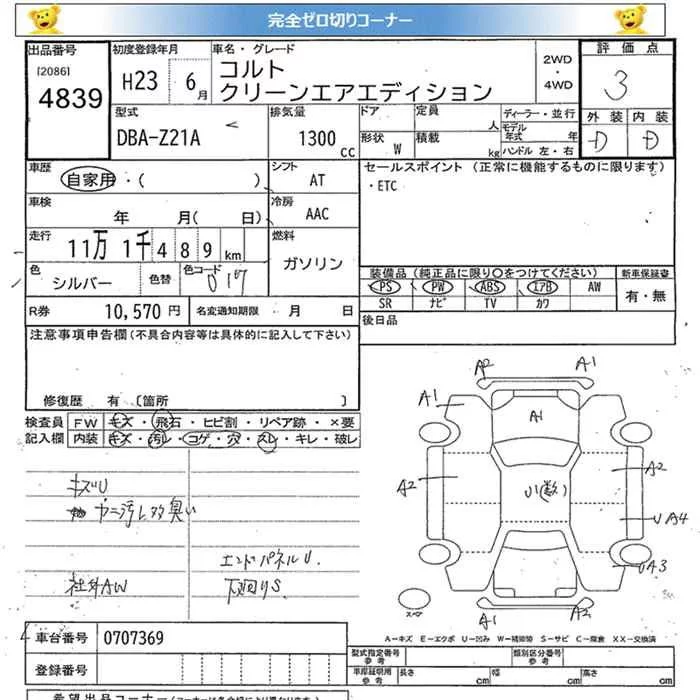 完全ゼロ切りコーナー
出品番号 初度登録年月 車名・グレード 2WD ・ 4WD 評価点
[2086] 4839 H23 6月 コルト クリーンエアエディション 3
型式 排気量 ドア 定員 人 ディーラー・並行 外装 内装
DBA-Z21A 1300cc 形状 W 積載 kg モデル年式 年 ハンドル 左・右 D D
車歴 自家用・( ) シフト AT セールスポイント (正常に機能するものに限ります)
・ETC
車検 年 月( 日) 冷房 AAC
走行 11万 1千 4 8 9 km 燃料 ガソリン
色 シルバー 色替 色コード 017
装備品 (純正品に限り○をつけてください) 新車保証書
PS PW ABS エアB AW 有・無
SR ナビ TV カワ
R券 10,570 円 名変通知期限 月 日
後日品
注意事項申告欄(不具合内容等は具体的に記入して下さい)
修復歴 有 〔箇所 〕
検査員記入欄 FW キズ・飛石・ヒビ割・リペア跡・×要
内装 キズ・汚レ・コゲ・穴・スレ・キレ・破レ
キズU
ヤニ汚レ多臭い
エンドパネルU.
社外AW 下廻りS.
A2 A1
A1 A1
A2 U1(数) A2
UA4
UA3
スペア
A1 A2
A-キズ E-エクボ U-凹み W-補修跡 S-サビ C-腐食 XX-交換済
車台番号 0707369
登録番号
型式指定番号 参考 類別区分番号 参考
車庫証明用 参考 長さ cm 幅 cm 高さ cm
希望出品コーナー